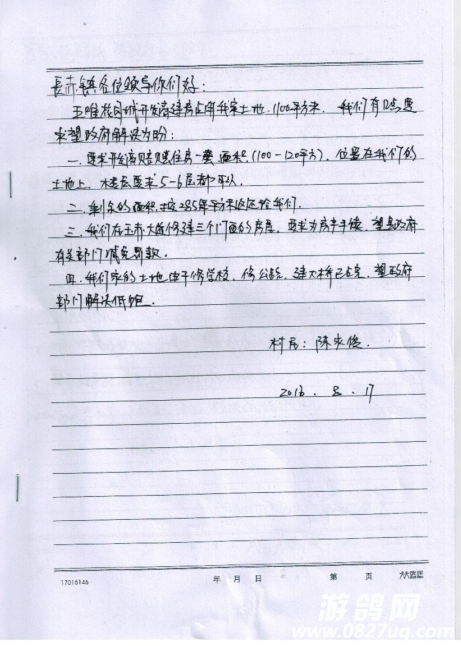 長赤镇各位领导你们好:
开发商建房占用我家土地1100平方米. 我们有几点要
求望政府解决为盼:
一. 要求开发商赔赔住房一套面积(100-120平方), 位置在我们的
土地上. 楼层要求5-6层都可以.
二. 剩余的面积按285每平方米返还给我们.
三. 我们在长赤大修建三个门面的房屋, 要求办房产手续, 望县政府
有关部门减免罚款.
四. 我们家的土地由于修学校, 修公路, 建大桥已占完, 望政府
部门解决低保.
村居: 陈
2016. 8. 17
17016146
年 月 日
第 页
游鸽网
www.0827uq.com